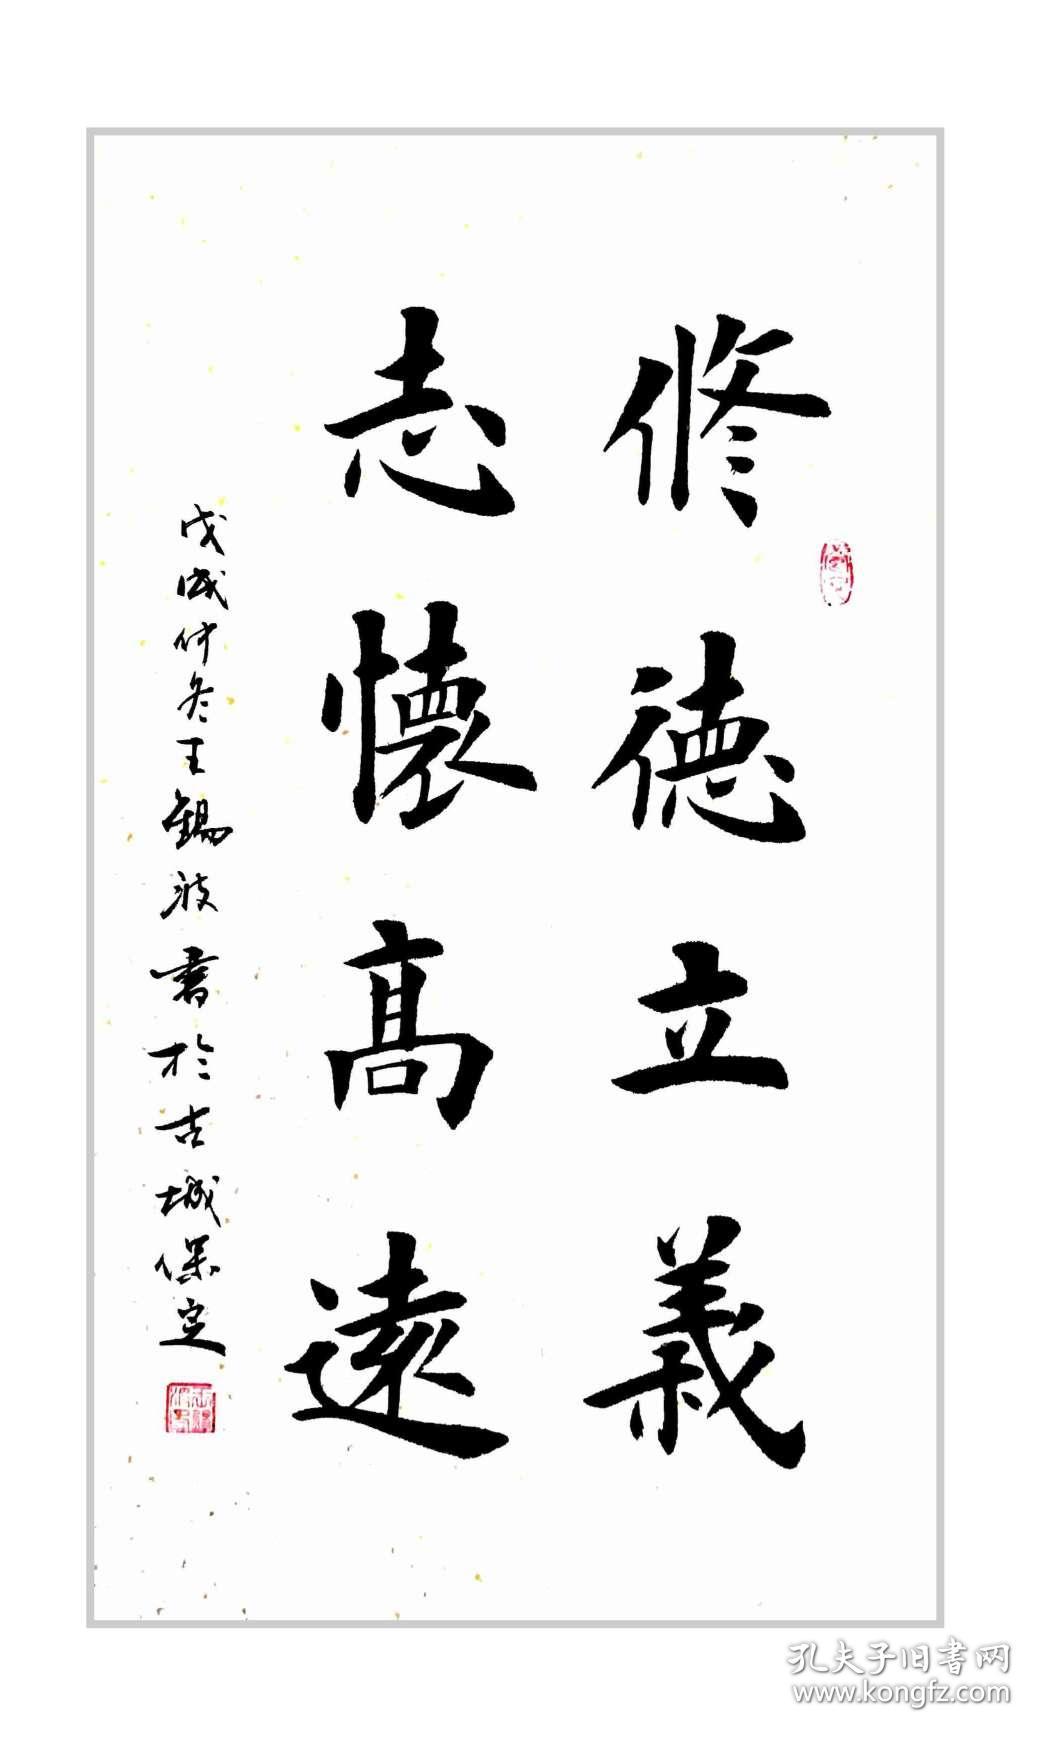 修德立義
志懷高遠
戊戌仲冬王錫波書於古城保定
孔夫子旧書网
www.kongfz.com